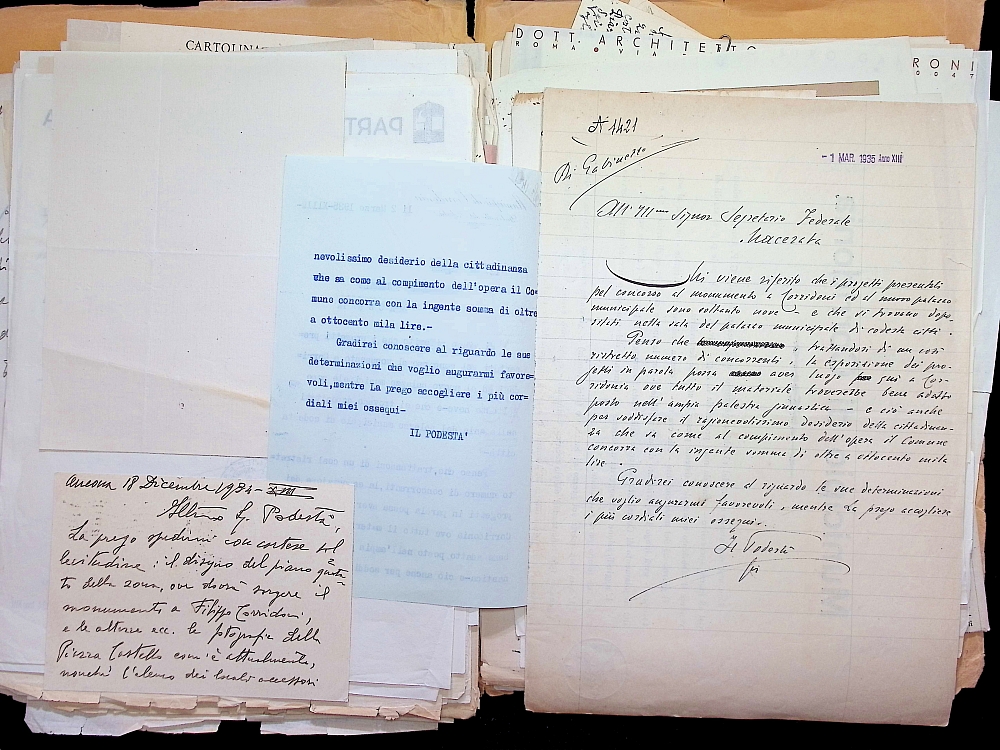 CARTOLINA
PART
nevolissimo desiderio della cittadinanza
che sa como al compimento dell'opera il Co=
mune concorra con la ingente somma di oltre
a ottocento mila lire.-
Gradirei conoscere al riguardo le sue
determinazioni che voglio augurarmi favore=
voli,mentre La prego accogliere i più cor=
diali miei ossequi-
IL PODESTA'
Ancona 18 Dicembre 1934-XIII
Ill.mo Sg. Podestà,
La prego spedirmi con cortese sol
lecitudine: il disegno del piano quota
to della zona, ove dovrà sorgere il
monumento a Filippo Corridoni,
e le altezze ecc. le fotografie della
Piazza Castello com'è attualmente,
nonché l'elenco dei locali accessori
DOTT. ARCHITETTO
ROMA VIA
RONI
0047
N 1421
Di Gabinetto
- 1 MAR. 1935 Anno XIII
All'Ill.mo Signor Segretario Federale
Macerata
Mi viene riferito che i progetti presentati
pel concorso al monumento a Corridoni ed al nuovo palazzo
municipale sono soltanto nove - e che si trovano depo-
sitati nella sala del palazzo municipale di codesta città.
Penso che, trattandosi di un così
ristretto numero di concorrenti, la esposizione dei pro-
getti in parola possa aver luogo qui a Cor-
ridonia ove tutto il materiale troverebbe bene adatto
posto nell'ampia palestra ginnastica - e ciò anche
per soddisfare il ragionevolissimo desiderio della cittadinan-
za che sa come al compimento dell'opera il Comune
concorra con la ingente somma di oltre a ottocento mila
lire.
Gradirei conoscere al riguardo le sue determinazioni
che voglio augurarmi favorevoli, mentre La prego accogliere
i più cordiali miei ossequi.
Il Podestà